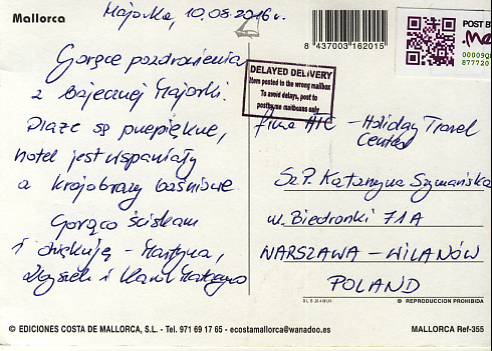 Mallorca
Majorka, 10.08.2016 r.
8 437003 162015
POST BY
00009Q
877720
DELAYED DELIVERY
Item posted in the wrong mailbox
To avoid delays, post to
postbyme mailboxes only
Gorące pozdrowienia
z bajecznej Majorki.
Plaże są przepiękne,
hotel jest wspaniały
a krajobrazy baśniowe.
Gorąco ściskam
i dziękuję – Martyna,
Zbyszek i Karol
firma HTC – Holiday Travel
Center
Sz.P. Katarzyna Szymańska
ul. Biedronki 71A
WARSZAWA – WILANÓW
POLAND
REPRODUCCIÓN PROHIBIDA
© EDICIONES COSTA DE MALLORCA, S.L. - Tel. 971 69 17 65 - ecostamallorca@wanadoo.es
MALLORCA Ref-355